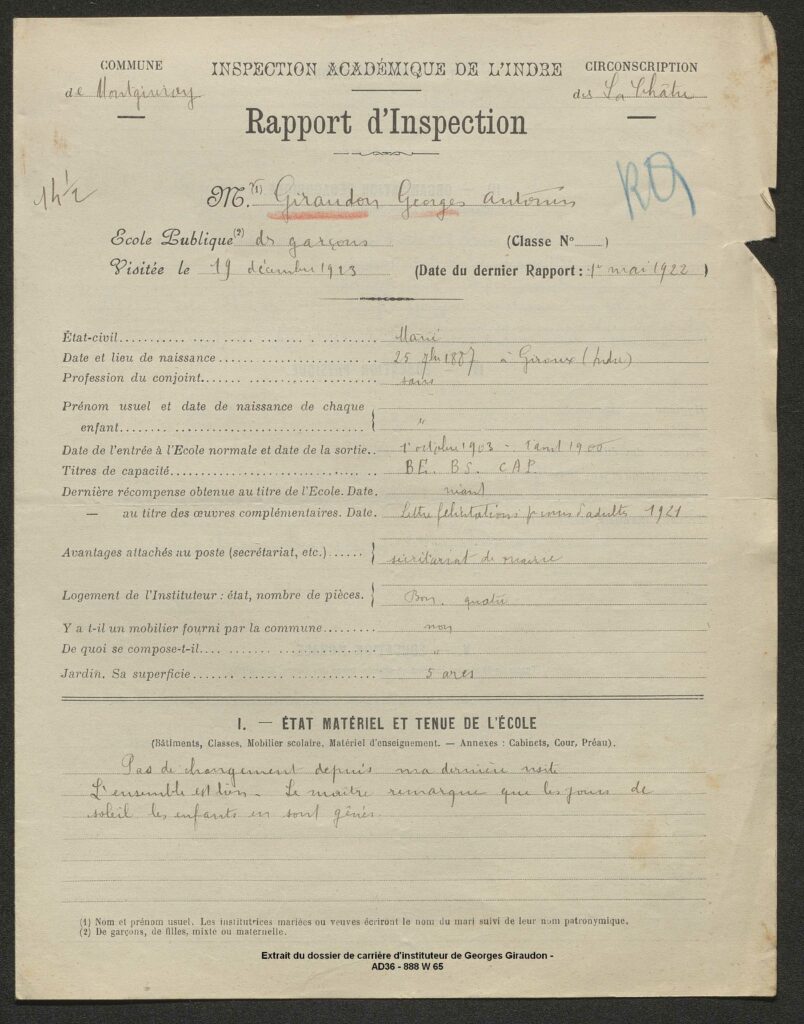 COMMUNE
de Montgivray
INSPECTION ACADÉMIQUE DE L'INDRE
CIRCONSCRIPTION
des La Châtre
Rapport d'Inspection
14 1/2
M. (1) Giraudon Georges Antonin
École Publique (2) de garçons (Classe N° )
Visitée le 19 décembre 1923 (Date du dernier Rapport : 1er mai 1922 )
État-civil Marié
Date et lieu de naissance 25 1887 à Giroux (Indre)
Profession du conjoint sans
Prénom usuel et date de naissance de chaque
enfant "
Date de l'entrée à l'Ecole normale et date de la sortie 1er octobre 1903 - 1 aout
Titres de capacité BE. BS. CAP.
Dernière récompense obtenue au titre de l'Ecole. Date. néant
— au titre des œuvres complémentaires. Date. Lettre félicitations d'adultes 1921
Avantages attachés au poste (secrétariat, etc.) secrétariat de mairie
Logement de l'Instituteur : état, nombre de pièces. Bon. quatre
Y a t-il un mobilier fourni par la commune non
De quoi se compose-t-il "
Jardin. Sa superficie 5 ares
I. — ÉTAT MATÉRIEL ET TENUE DE L'ÉCOLE
(Bâtiments, Classes, Mobilier scolaire, Matériel d'enseignement. — Annexes : Cabinets, Cour, Préau).
Pas de changement depuis ma dernière visite
L'ensemble est bien. Le maître remarque que les jours de
soleil les enfants en sont gênés.
(1) Nom et prénom usuel. Les institutrices mariées ou veuves écriront le nom du mari suivi de leur nom patronymique.
(2) De garçons, de filles, mixte ou maternelle.
Extrait du dossier de carrière d'instituteur de Georges Giraudon -
AD36 - 888 W 65